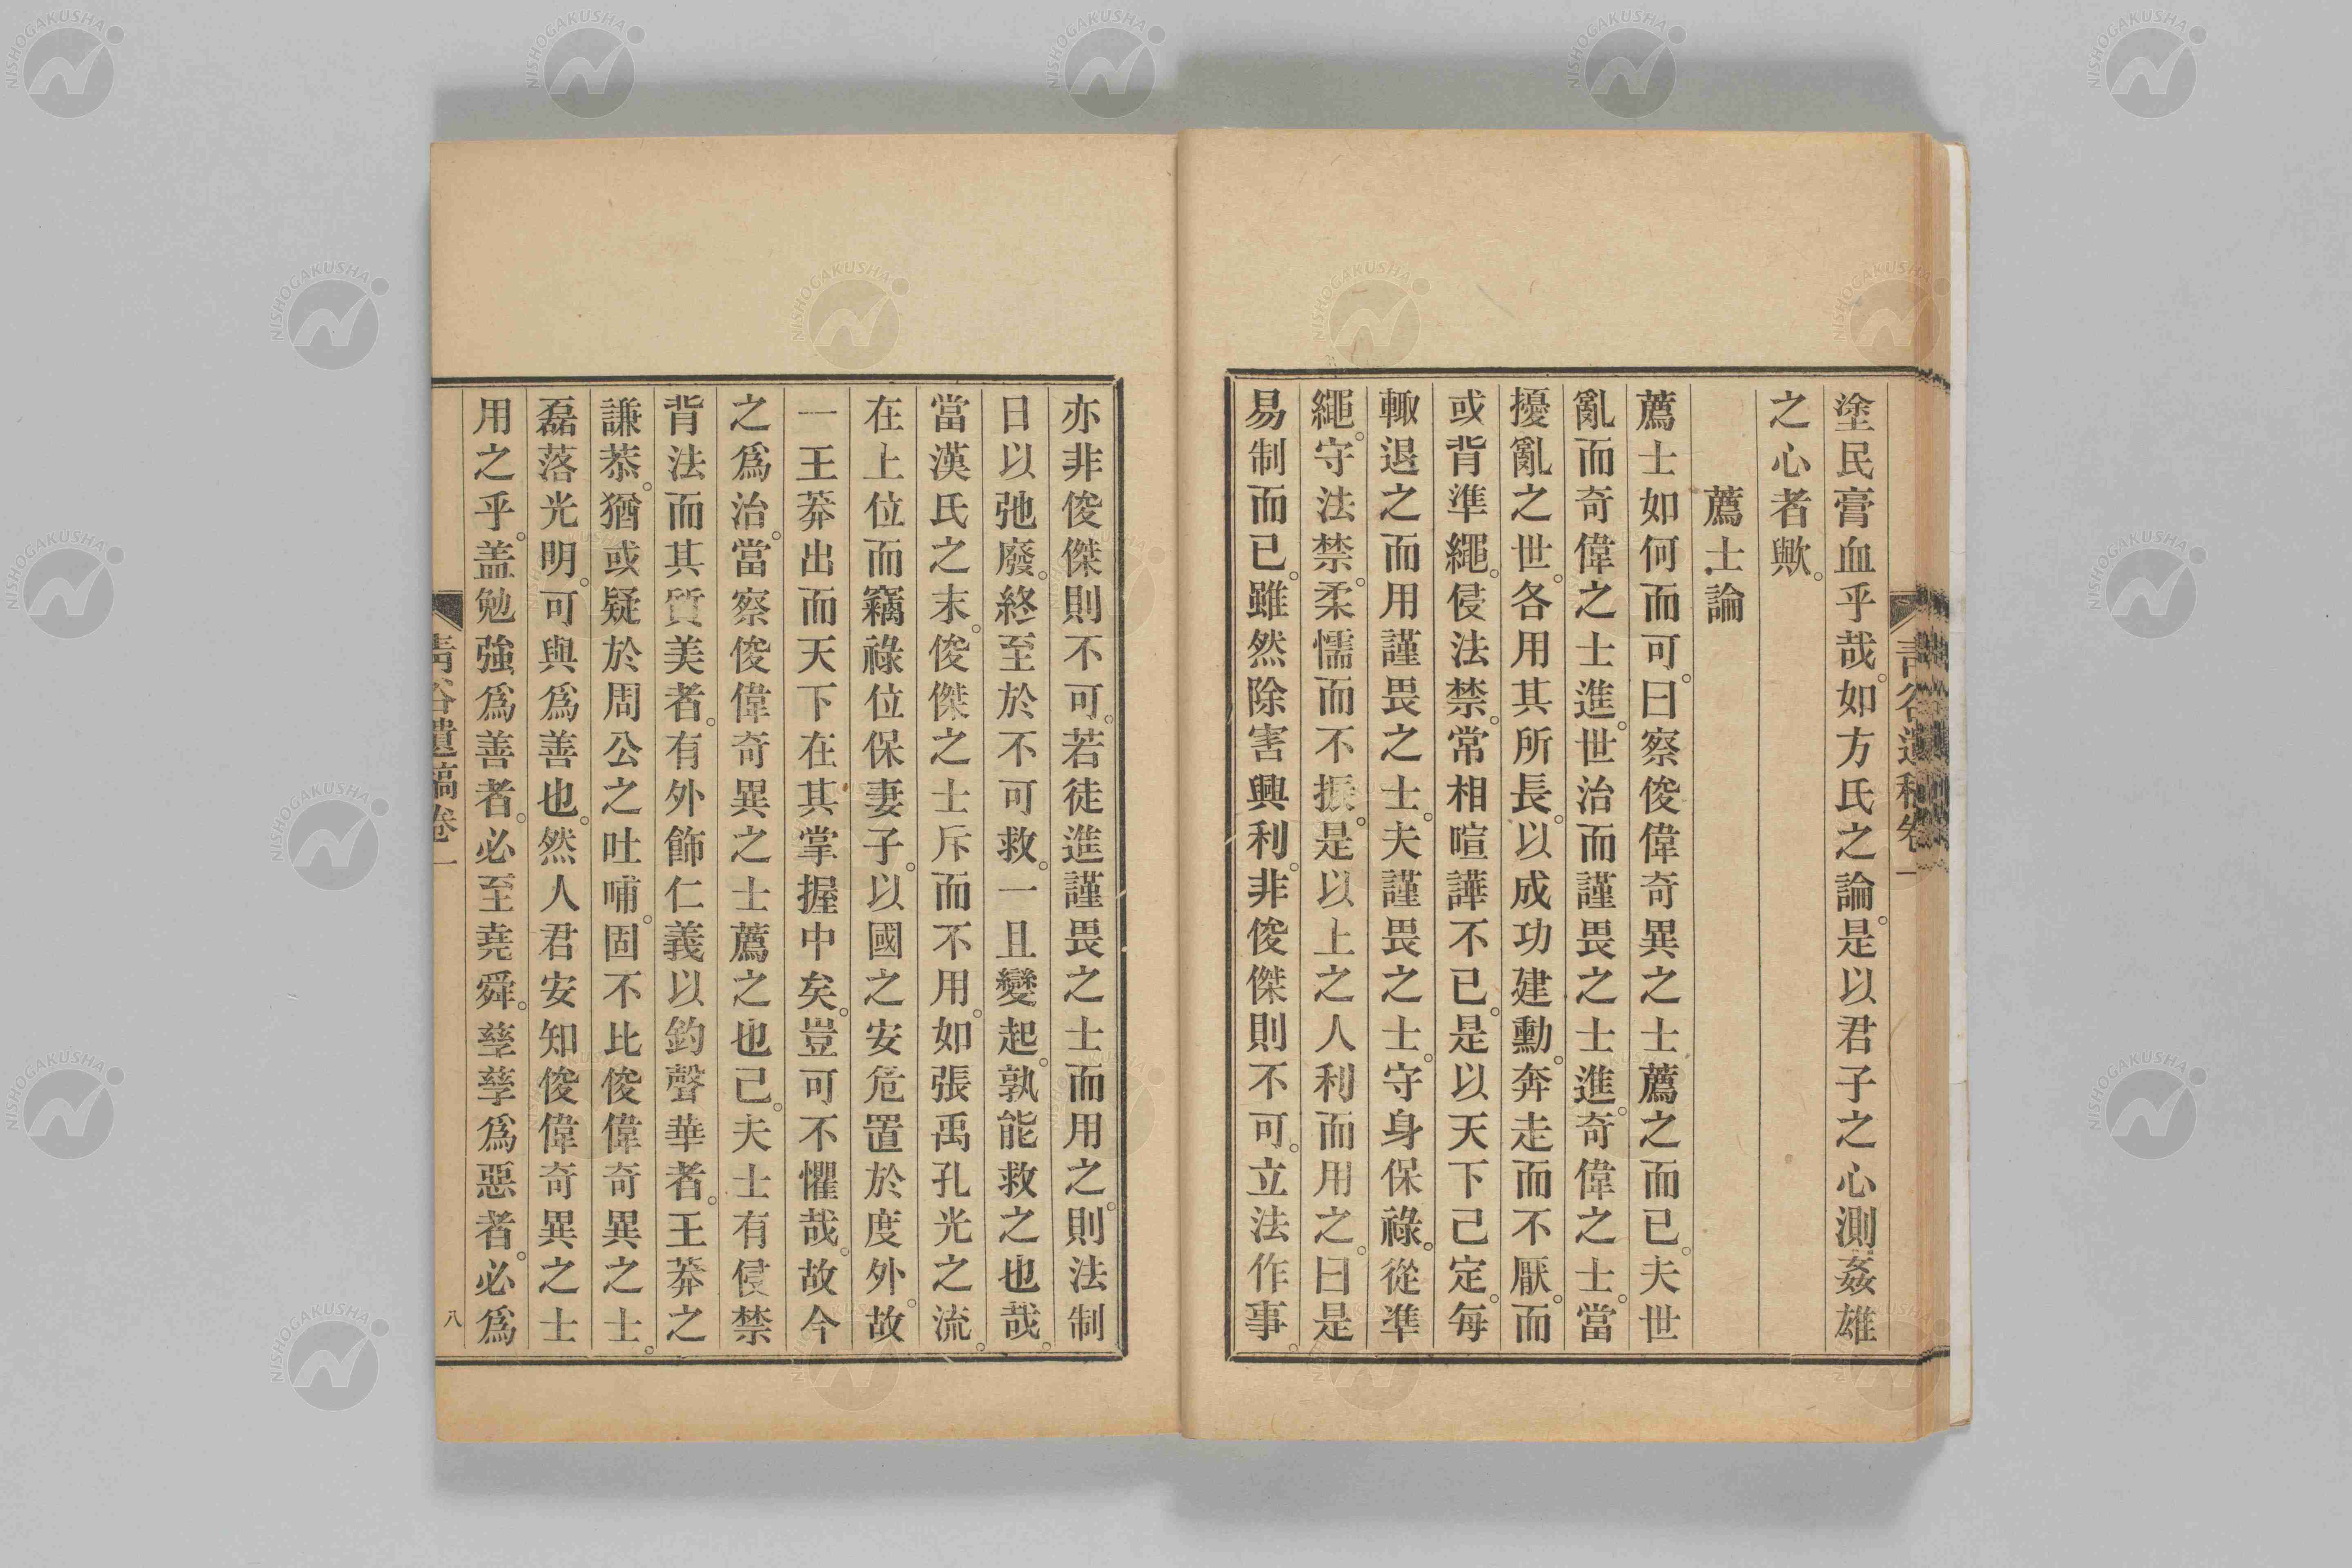 塗民膏血乎哉。如方氏之論。是以君子之心測姦雄
之心者歟。
薦士論
薦士如何而可。曰察俊偉奇異之士薦之而已。夫世
亂而奇偉之士進。世治而謹畏之士進。奇偉之士。當
擾亂之世。各用其所長。以成功建勳。奔走而不厭。而
或背準繩。侵法禁。常相喧譁不已。是以天下已定。每
輙退之而用謹畏之士。夫謹畏之士。守身保祿。從準
繩。守法禁。柔懦而不振。是以上之人利而用之。曰是
易制而已。雖然除害興利。非俊傑則不可。立法作事。
亦非俊傑則不可。若徒進謹畏之士而用之。則法制
日以弛廢。終至於不可救。一旦變起。孰能救之也哉。
當漢氏之末。俊傑之士斥而不用。如張禹孔光之流。
在上位而竊祿位保妻子。以國之安危置於度外。故
一王莽出而天下在其掌握中矣。豈可不懼哉。故今
之爲治。當察俊偉奇異之士薦之也已。夫士有侵禁
背法而其質美者。有外飾仁義以釣聲華者。王莽之
謙恭。猶或疑於周公之吐哺。固不比俊偉奇異之士。
磊落光明。可與爲善也。然人君安知俊偉奇異之士
用之乎。盖勉強爲善者。必至堯舜。孳孳爲惡者。必爲
青谷遺稿卷一
八
青谷遺稿卷一
NISHOGAKUSHA